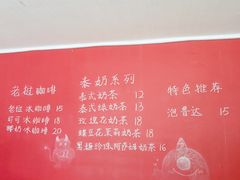 老挝咖啡
老挝冰咖啡 15
可可冰咖啡 18
椰奶冰咖啡 20
泰奶系列
泰式奶茶 12
泰式绿奶茶 13
玫瑰花奶茶 18
蝶豆花茉莉奶茶 18
黑糖珍珠阿萨姆奶茶 16
特色推荐
泡鲁达 15